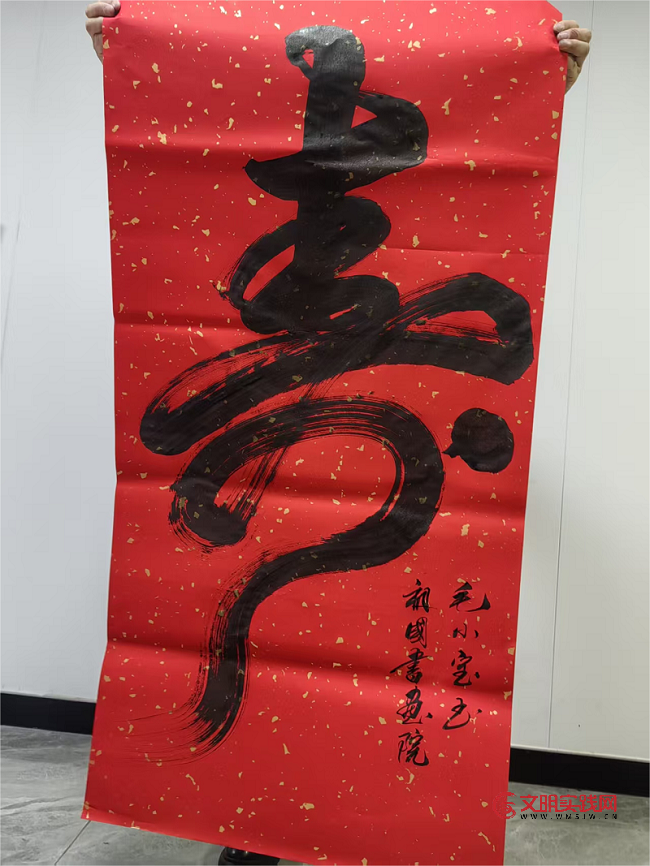 寿
毛小宝书
祖国书画院
文明实践网
WWW.WMSJW.CN